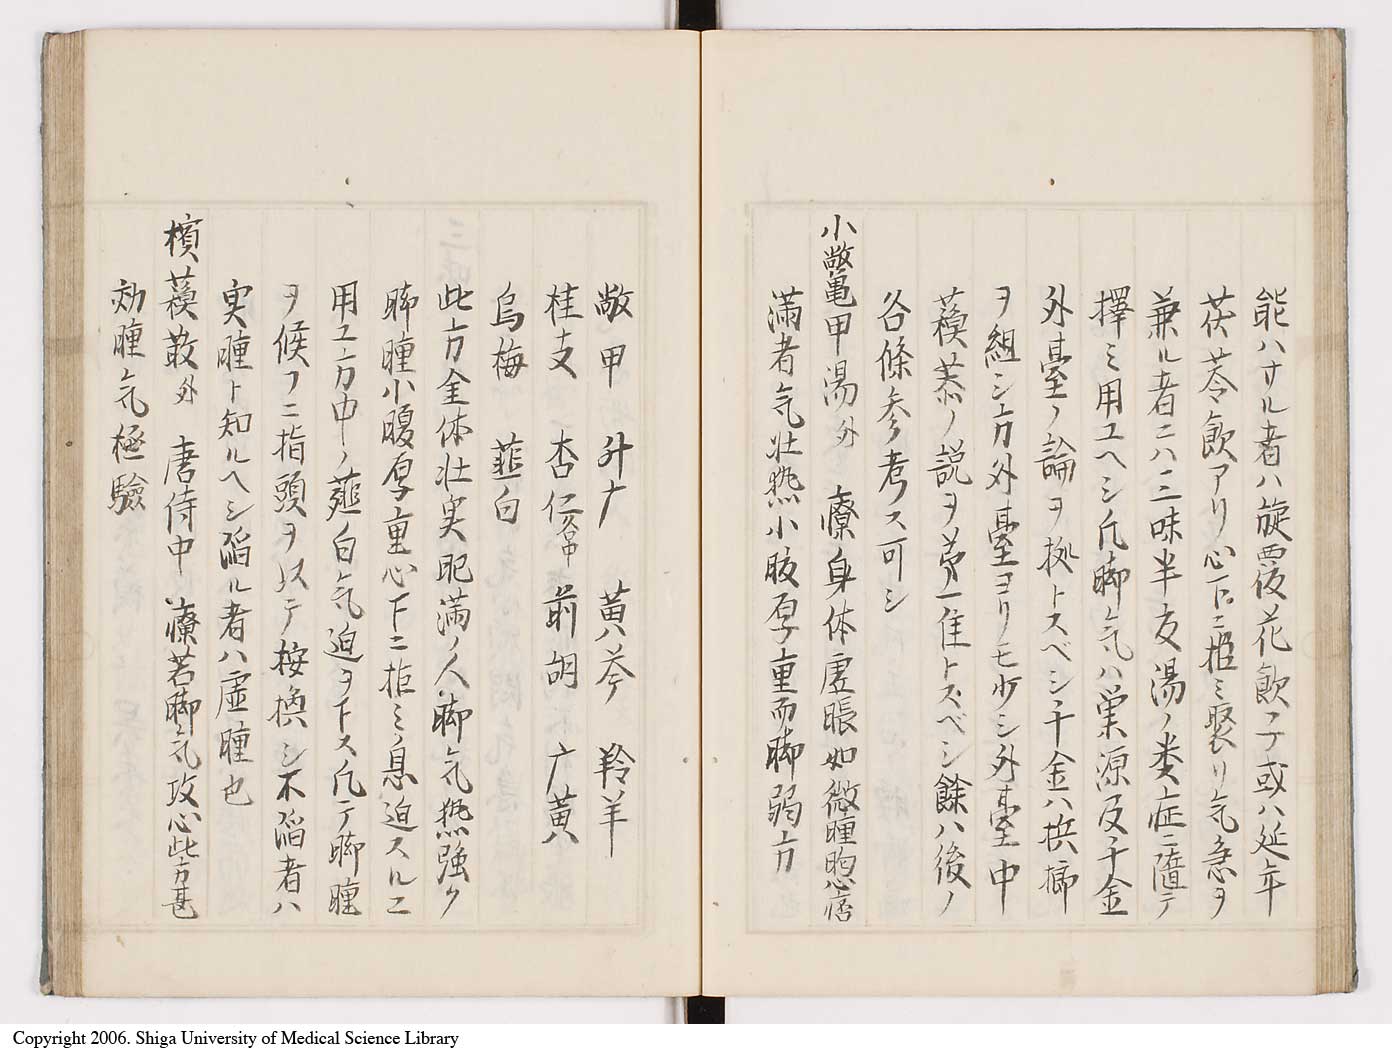 能ハサル者ハ旋覆花飲ニテ或ハ延年
茯苓飲アリ心下ニ拒ミ聚リ気急ヲ
兼ル者ニハ三味半夏湯ノ类症ニ隨テ
擇ミ用ユヘシ凡脚気ハ巣源及千金
外臺ノ論ヲ拠トスベシ千金ハ梹榔
ヲ組シ方外臺ヨリモ少シ外臺中
蘓恭ノ説ヲ第一隹トスベシ餘ハ後ノ
各條参考ス可シ
小鼈甲湯外 療身体虚脹如微腫胸心痞
滿者気壮热小腹厚重而脚弱方
鼈甲 升广 黄芩 羚羊
桂支 杏仁各中 前胡 广黄
烏梅 薤白
此方全体壮実肥満ノ人脚気热强ク
脚腫小腹厚重心下ニ拒ミ息迫スルニ
用ユ方中ノ薤白気迫ヲ下ス凡テ脚腫
ヲ候フニ指頭ヲ以テ按換シ不陷者ハ
実腫ト知ルヘシ陷ル者ハ虚腫也
檳蘓散外 唐侍中 療若脚気攻心此方甚
効腫気極驗
Copyright 2006. Shiga University of Medical Science Library